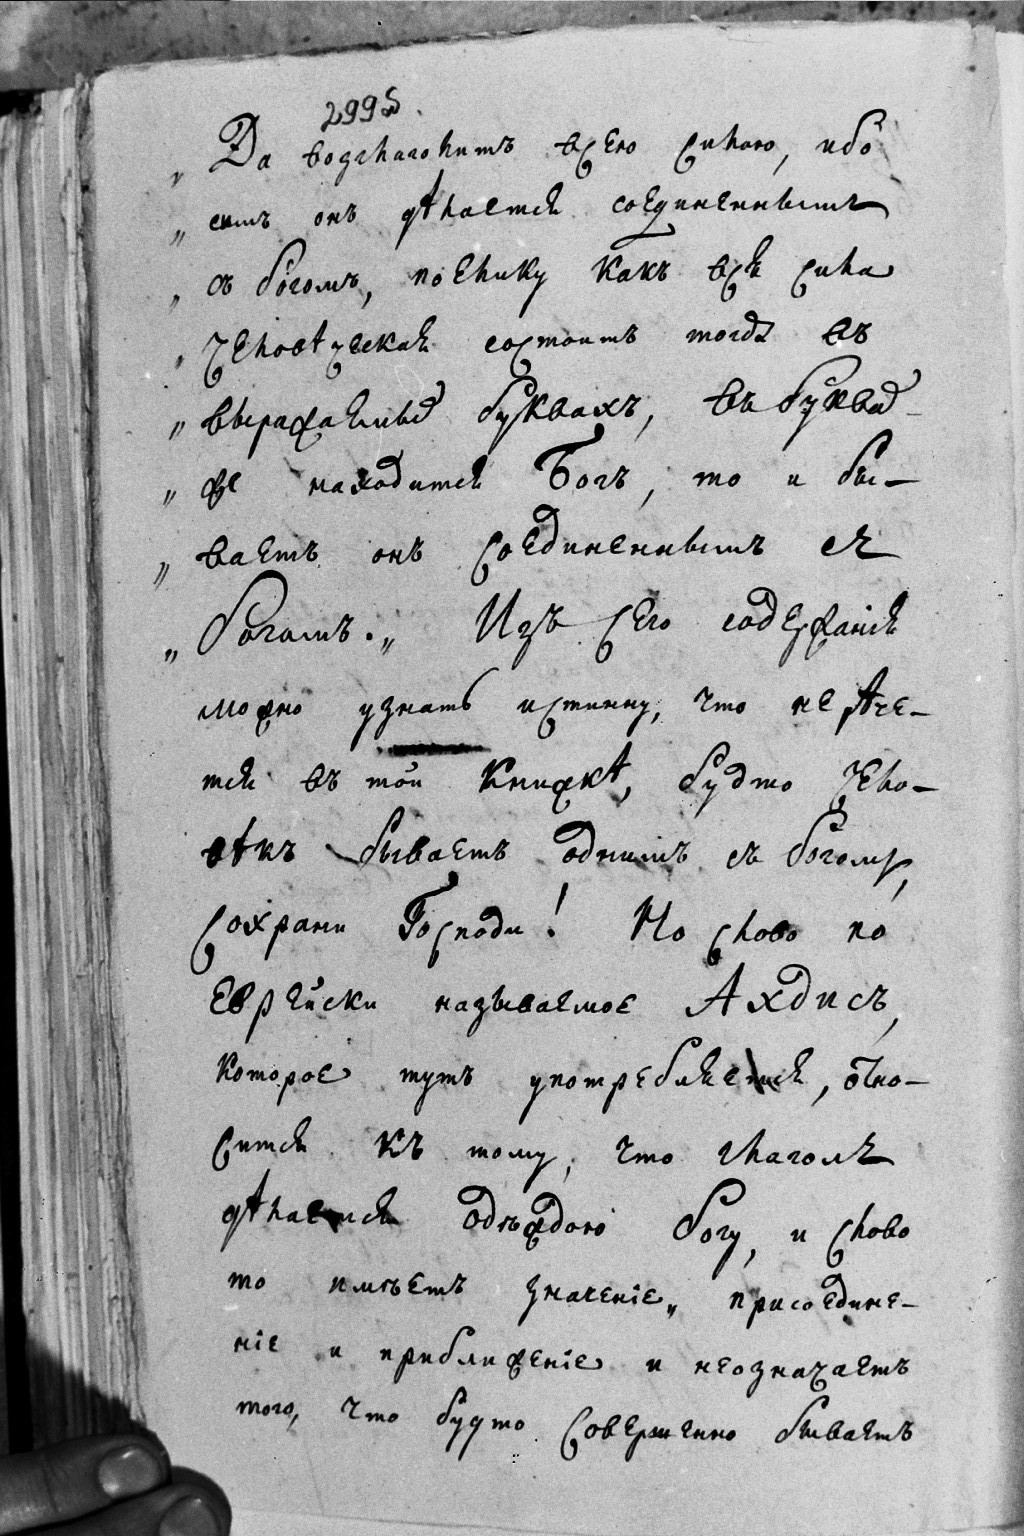 2995.
„ Да возглаголитъ всею силою, ибо
„ симъ онъ дѣлается соединеннымъ
„ съ богомъ, поелику какъ вся сила
„ человѣческая состоитъ тогда въ
„ выражаемыхъ буквахъ, въ буквахъ
„ же находится Богъ, то и бы-
„ ваетъ онъ соединеннымъ съ
„ богомъ.„ Изъ сего содержанія
можно узнать истинну, что не пѣче-
тся въ той книжкѣ, будто чело-
вѣкъ бываетъ однимъ съ богомъ,
сохрани Господи! Но слово по
еврейски называемое Ахдисъ,
которое тутъ употребляется, отно-
сится къ тому, что глаголъ
дѣлается одеждою богу, и слово
то имѣетъ значеніе„ присоедине-
ніе и приближеніе и неозначаетъ
того, что будто совершенно бываетъ